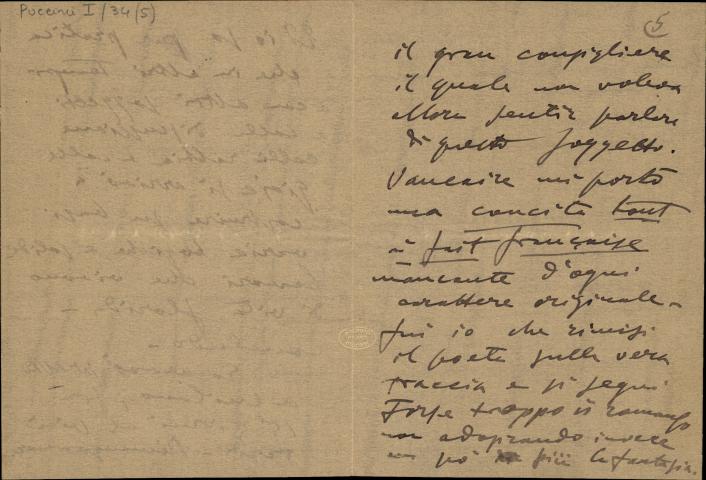 Puccini I/34(5)
5
il gran consigliere
il quale non voleva
allora sentir parlare
di questo soggetto.
Vaucaire mi portò
una concita tout
à fait française
mancante d'ogni
carattere originale -
fui io che rimisi
il poeta sulla vera
traccia e si seguì
Forse troppo il romanzo
non adoprando invece
un pò più la fantasia.